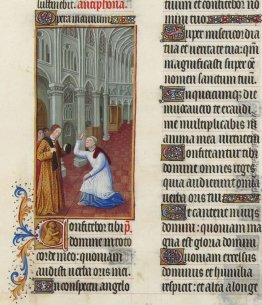 sustinebit. antiphona.
Opera manuum
Confitebor tibi p̄.
domine in toto
corde meo: quoniam
audisti verba oris mei.
In conspectu angelo
tuum et confitebor: no
mini tuo
Super misericordia
tua et veritate tua: qm̄
magnificasti super om̄e
nomen sanctum tuum.
In quacumque die
invocavero te exaudi
me multiplicabis in
anima mea virtutem
Confiteantur tibi
domine omnes reges
quia audierunt omnia
verba oris tui
Et cantent in viis
domini: quoniam ma
gna est gloria domini
Quoniam excelsus
dominus et humilia
respicit: et alta alonge